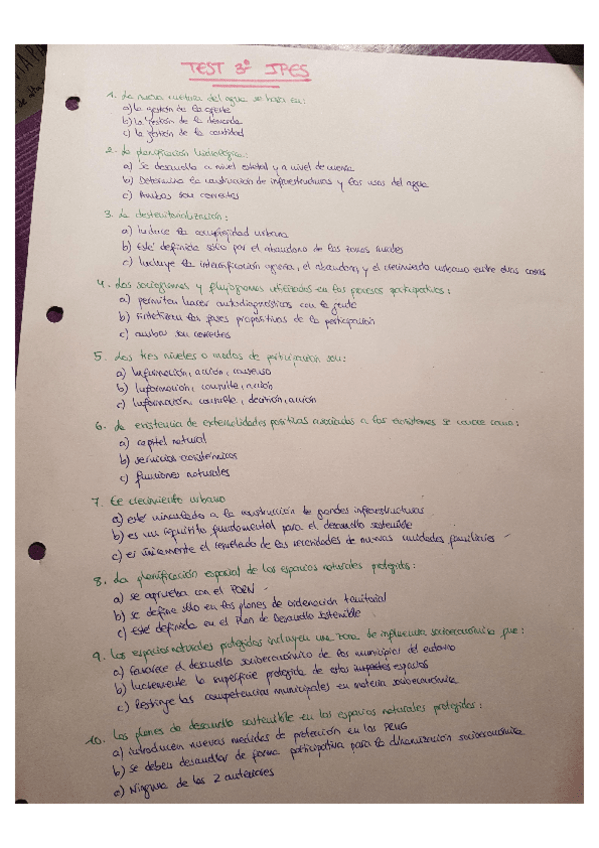 TEST 3º IPES
1. La nueva cultura del agua se basa en:
a) la gestión de la oferta
b) la gestión de la demanda
c) la gestión de la cantidad
2. La planificación hidrológica:
a) Se desarrolla a nivel estatal y a nivel de cuenca
b) Determina la construcción de infraestructuras y los usos del agua
c) Ambas son correctas
3. La desterritorialización:
a) Induce la complejidad urbana
b) Está definida sólo por el abandono de las zonas rurales
c) Incluye la intensificación agraria, el abandono, y el crecimiento urbano entre otras cosas
4. Los sociogramas y flujogramas utilizados en los procesos participativos:
a) permiten hacer autodiagnósticos con la gente
b) Sintetizan las fases propositivas de la participación
c) ambas son correctas
5. Los tres niveles o modos de participación son:
a) Información, acción, consenso
b) Información, consulta, acción
c) Información consulta, decisión, acción
6. La existencia de externalidades positivas asociadas a los ecosistemas se conoce como:
a) capital natural
b) servicios ecosistémicos
c) funciones naturales
7. El crecimiento urbano
a) está vinculado a la construcción de grandes infraestructuras
b) es un requisito fundamental para el desarrollo sostenible
c) es únicamente el resultado de las necesidades de nuevas unidades familiares
8. La planificación espacial de los espacios naturales protegidos:
a) se aprueba con el PORN
b) se define sólo en los planes de ordenación territorial
c) Está definida en el Plan de Desarrollo Sostenible
9. Los espacios naturales protegidos incluyen una zona de influencia socioeconómica que:
a) favorece el desarrollo socioeconómico de los municipios del entorno
b) Incrementa la superficie protegida de estos espacios
c) Restringe las competencias municipales en materia socioeconómica
10. Los planes de desarrollo sostenible en los espacios naturales protegidos:
a) introducen nuevas medidas de protección en los PRUG
b) se deben desarrollar de forma participativa para la dinamización socioeconómica
c) Ninguna de las 2 anteriores